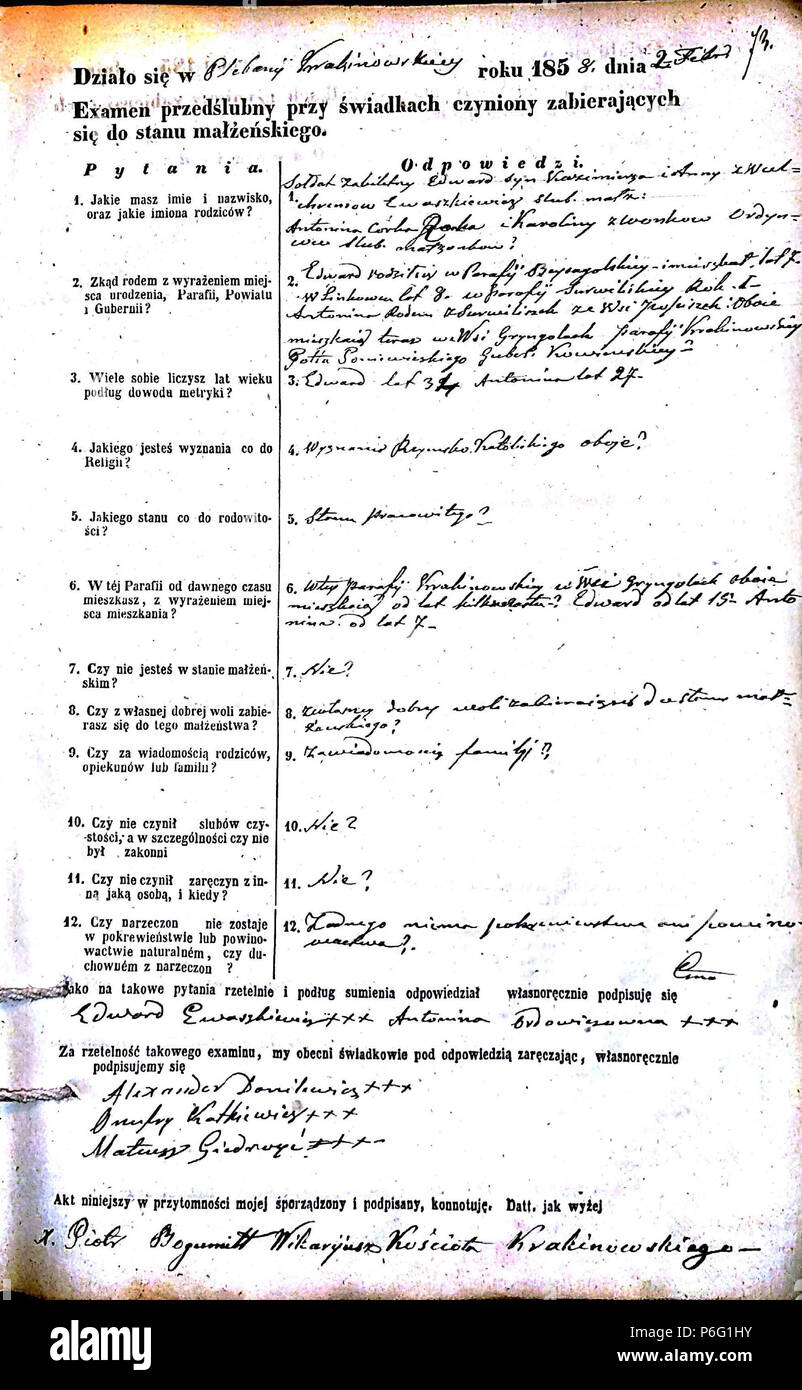 73.
Działo się w Plebanij Krakinowskiey roku 1858. dnia 2 Febr
Examen przedślubny przy świadkach czyniony zabierających
się do stanu małżeńskiego.
Pytania.
Odpowiedzi.
1. Jakie masz imie i nazwisko,
oraz jakie imiona rodziców?
1. Soldat zabiletny Edward syn Kazimierza i Anny z
Ewaszkiewicz slub. małż:
Antonina Córka i Karoliny z
slub. małżonków?
2. Zkąd rodem z wyrażeniem miej-
sca urodzenia, Parafii, Powiatu
i Gubernii?
2. Edward rodził się w Parafij Beysagolskiey i mieszkał lat 7.
w Linkowcu lat 8. w Parafij Surwiliskiey Rok 1-
Antonina Rodem z Surwiliszek ze Wsi Oboie
mieszkaią teraz we Wsi Gryngolach parafij Krakinowskiey
Pottu Poniewieskiego Guber. Kowienskiey?
3. Wiele sobie liczysz lat wieku
podług dowodu metryki?
3. Edward lat 34 Antonina lat 27-
4. Jakiego jesteś wyznania co do
Religii?
4. Wyznania Rzymsko Katolikiego oboje?
5. Jakiego stanu co do rodowito-
ści?
5. Stanu pracowitego?
6. W téj Parafii od dawnego czasu
mieszkasz, z wyrażeniem miej-
sca mieszkania?
6. W tey parafij Krakinowskiey w Wsi Gryngolach oboie
mieszkaią od lat kilkunastu? Edward od lat 15- Anto
nina od lat 7-
7. Czy nie jesteś w stanie małżeń-
skim?
7. Nie?
8. Czy z własnej dobrej woli zabie-
rasz się do tego małżeństwa?
8. z własney dobrey woli zabieraią się do stanu mał-
żeńskiego?
9. Czy za wiadomością rodziców,
opiekunów lub familii?
9. Za wiadomością familij?
10. Czy nie czynił slubów czy-
stości, a w szczególności czy nie
był zakonni
10. Nie?
11. Czy nie czynił zaręczyn z in-
ną jaką osobą, i kiedy?
11. Nie?
12. Czy narzeczon nie zostaje
w pokrewieństwie lub powino-
wactwie naturalném, czy du-
chowném z narzeczon ?
12. Żadnego niema pokrewieństwa ani powino-
wactwa?
Jako na takowe pytania rzetelnie i podług sumienia odpowiedział własnoręcznie podpisuję się
Edward Ewaszkiewicz +++ Antonina Ordowiczowna +++
Za rzetelność takowego examinu, my obecni świadkowie pod odpowiedzią zaręczając, własnoręcznie
podpisujemy się
Alexander Danilewicz +++
Onufry Katkiewicz +++
Mateusz Giedroyć +++
Akt niniejszy w przytomności mojej sporządzony i podpisany, konnotuję. Datt. jak wyżej
X. Piotr Bogumiłł Wikaryjusz Kościoła Krakinowskiego
alamy
Image ID: P6G1HY
www.alamy.com